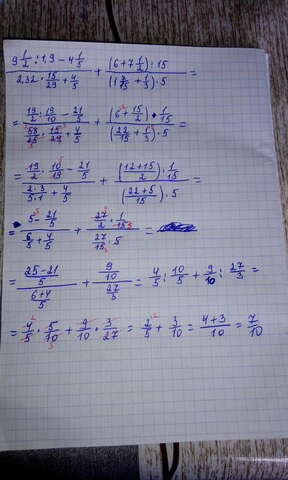 (9 1/2 : 1,9 - 4 1/5)/(2,32 · 15/29 + 4/5) + ((6 + 7 1/2) : 15)/((1 7/15 + 1/5) · 5) =
= (19/2 : 19/10 - 21/5)/(58/25 · 15/29 + 4/5) + ((6 + 15/2) · 1/15)/((22/15 + 1/3) · 5) =
= (19/2 · 10/19 - 21/5)/((2·3)/(5·1) + 4/5) + (((12+15)/2) · 1/15)/(((22+5)/15) · 5) =
= (5 - 21/5)/(6/5 + 4/5) + (27/2 · 1/15)/(27/15 · 5) =
= ((25-21)/5)/((6+4)/5) + (9/10)/(27/3) = 4/5 : 10/5 + 9/10 : 27/3 =
= 4/5 · 5/10 + 9/10 · 3/27 = 2/5 + 3/10 = (4+3)/10 = 7/10